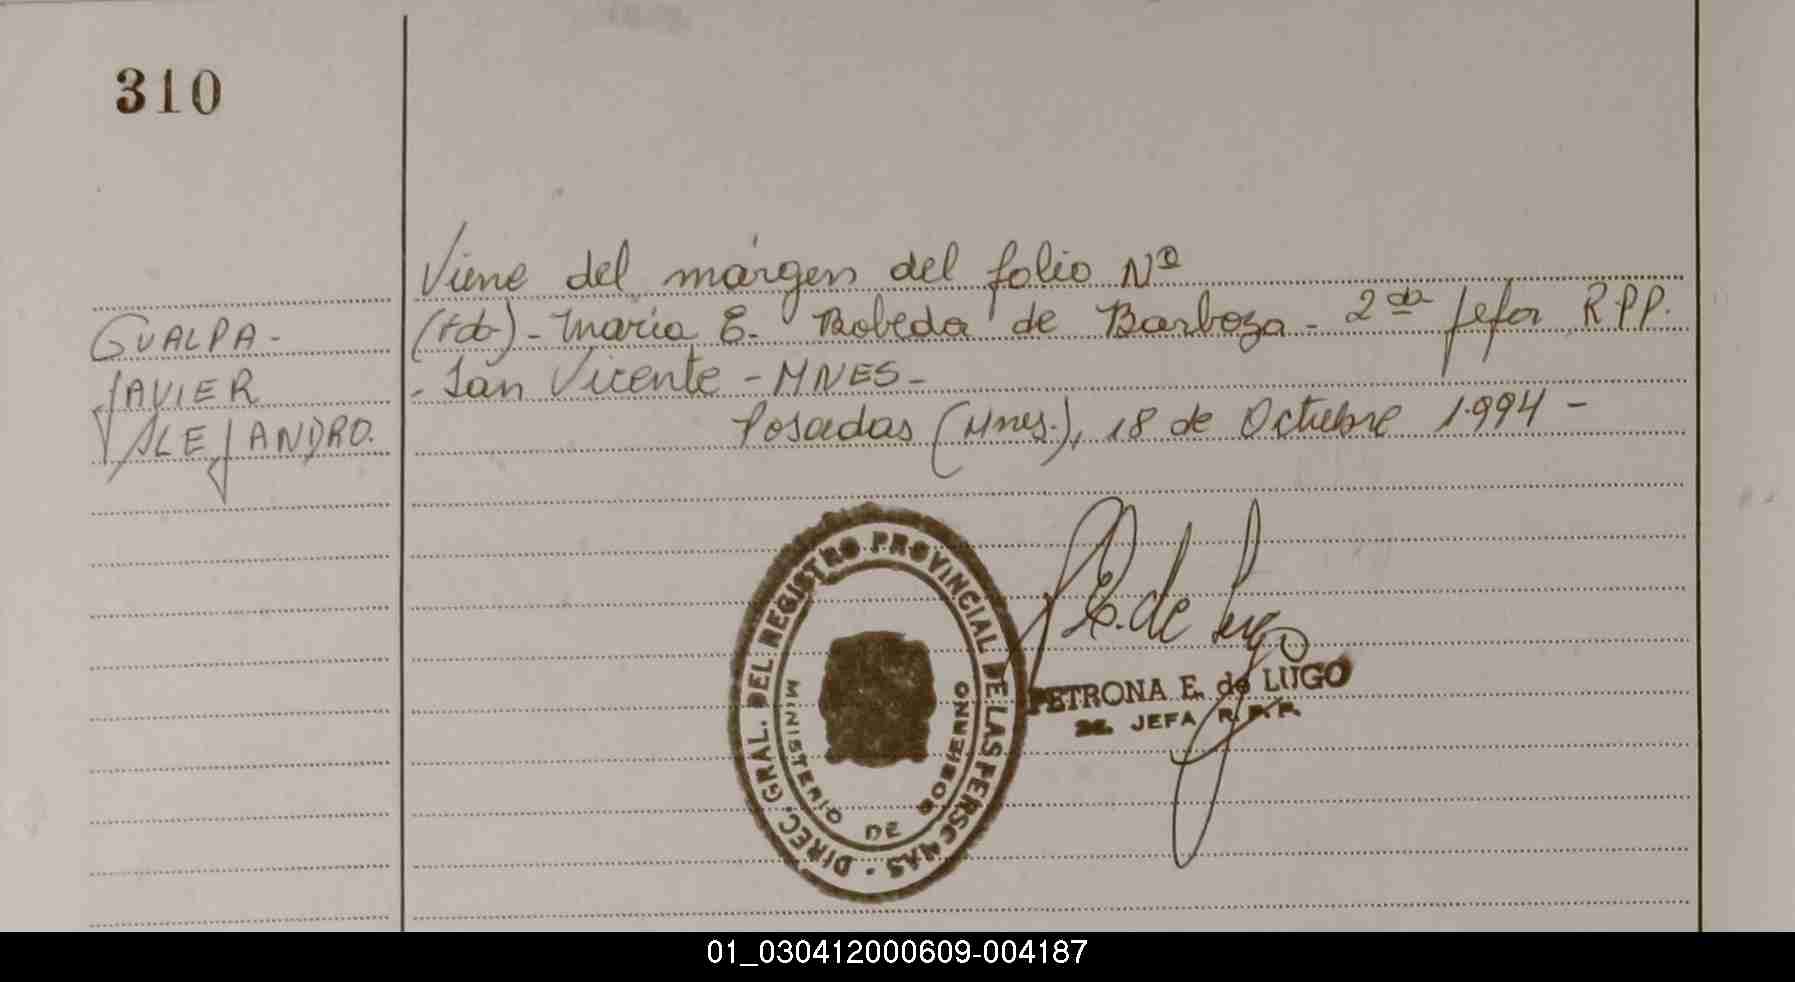 310
Viene del márgen del folio Nº
GUALPA -
JAVIER
ALEJANDRO.
(fdo) - María E. Bobeda de Barboza - 2da Jefa R.P.P.
- San Vicente - MNES -
Posadas (Mnes.), 18 de Octubre 1.994 -
DIREC. GRAL. DEL REGISTRO PROVINCIAL DE LAS PERSONAS
MINISTERIO DE GOBIERNO
P. E. de Lugo
PETRONA E. de LUGO
2a. JEFA R.P.P.
01_030412000609-004187